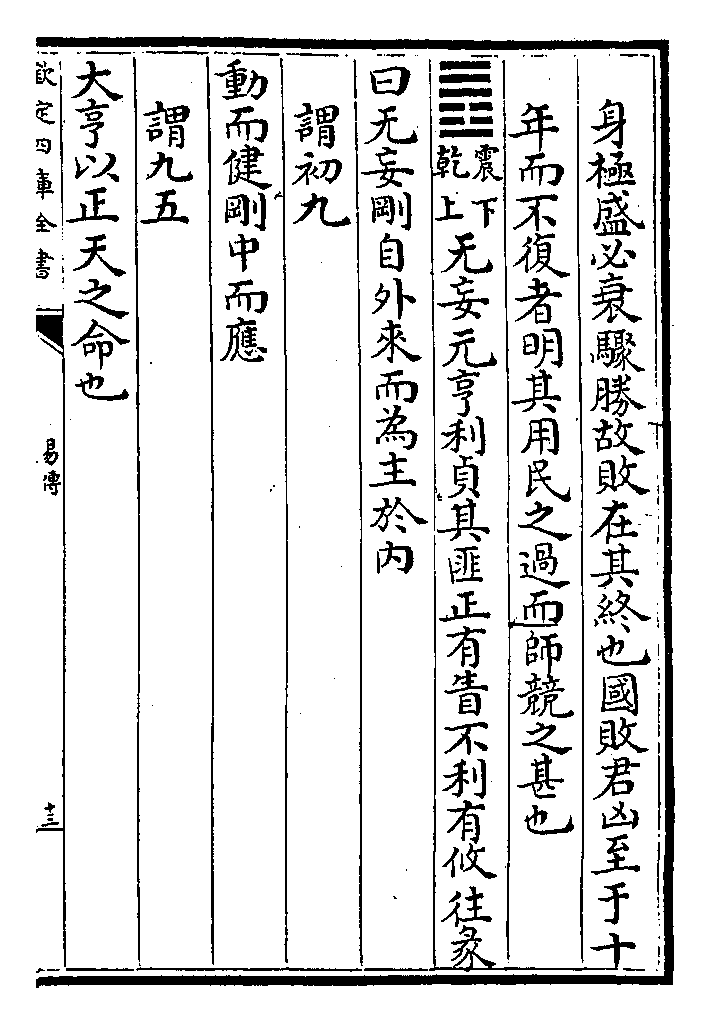 身極盛必衰驟勝故敗在其終也國敗君凶至于十
年而不復者明其用民之過而師競之甚也
䷘震下乾上无妄元亨利貞其匪正有眚不利有攸往彖
曰无妄剛自外來而為主於内
謂初九
動而健剛中而應
謂九五
大亨以正天之命也
欽定四庫全書
易傳
十三